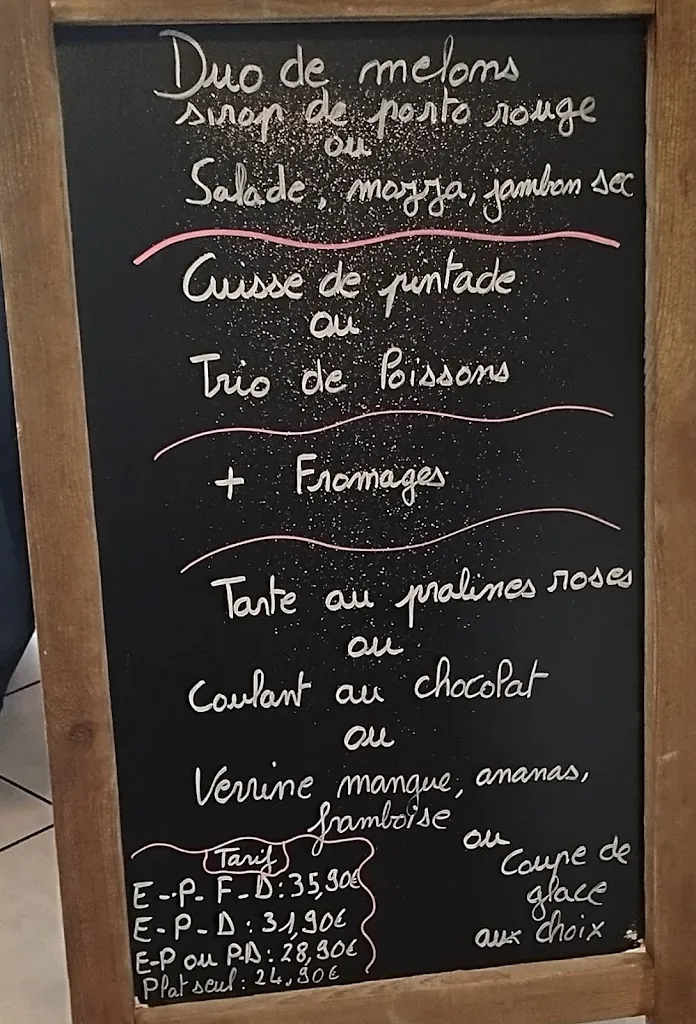 Duo de melons
sirop de porto rouge
ou
Salade, mozza, jambon sec
Cuisse de pintade
ou
Trio de Poissons
+ Fromages
Tarte au pralines roses
ou
Coulant au chocolat
ou
Verrine mangue, ananas,
framboise
ou
Coupe de
glace
aux choix
Tarif
E-P-F-D: 35,90€
E-P-D: 31,90€
E-P ou P.D: 28,90€
Plat seul: 24,90€